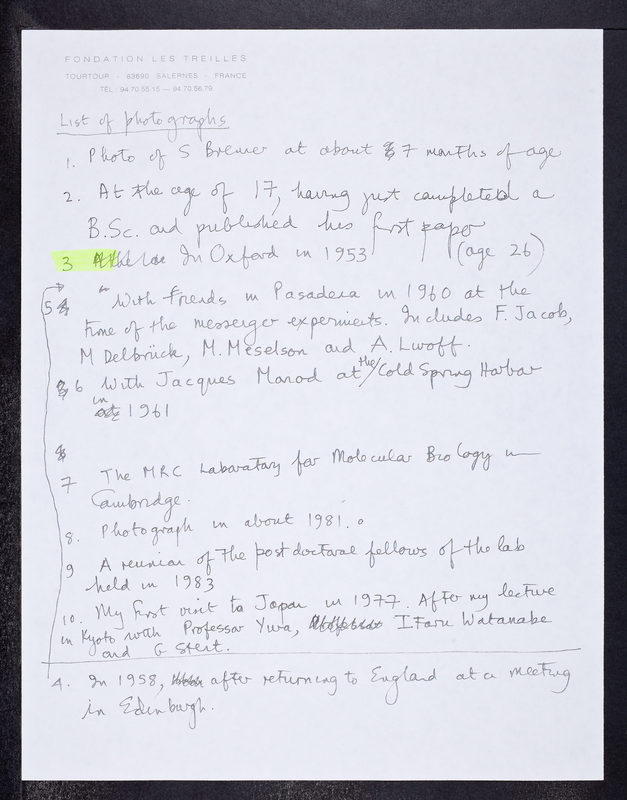 FONDATION LES TREILLES
TOURTOUR - 83690 SALERNES - FRANCE
TÉL: 94.70.55.15 — 94.70.56.79
List of photographs
1. Photo of S Brenner at about 7 months of age
2. At the age of 17, having just completed a
B.Sc. and published his first paper
3 In Oxford in 1953 (age 26)
5 With friends in Pasadena in 1960 at the
time of the messenger experiments. Includes F. Jacob,
M Delbrück, M. Meselson and A. Lwoff.
6 With Jacques Monod at the Cold Spring Harbor
in 1961
7 The MRC Laboratory for Molecular Biology in
Cambridge.
8. Photograph in about 1981.
9 A reunion of the postdoctoral fellows of the lab
held in 1983
10. My first visit to Japan in 1977. After my lecture
in Kyoto with Professor Yura, Itaru Watanabe
and G Stent.
4. In 1958, after returning to England at a meeting
in Edinburgh.